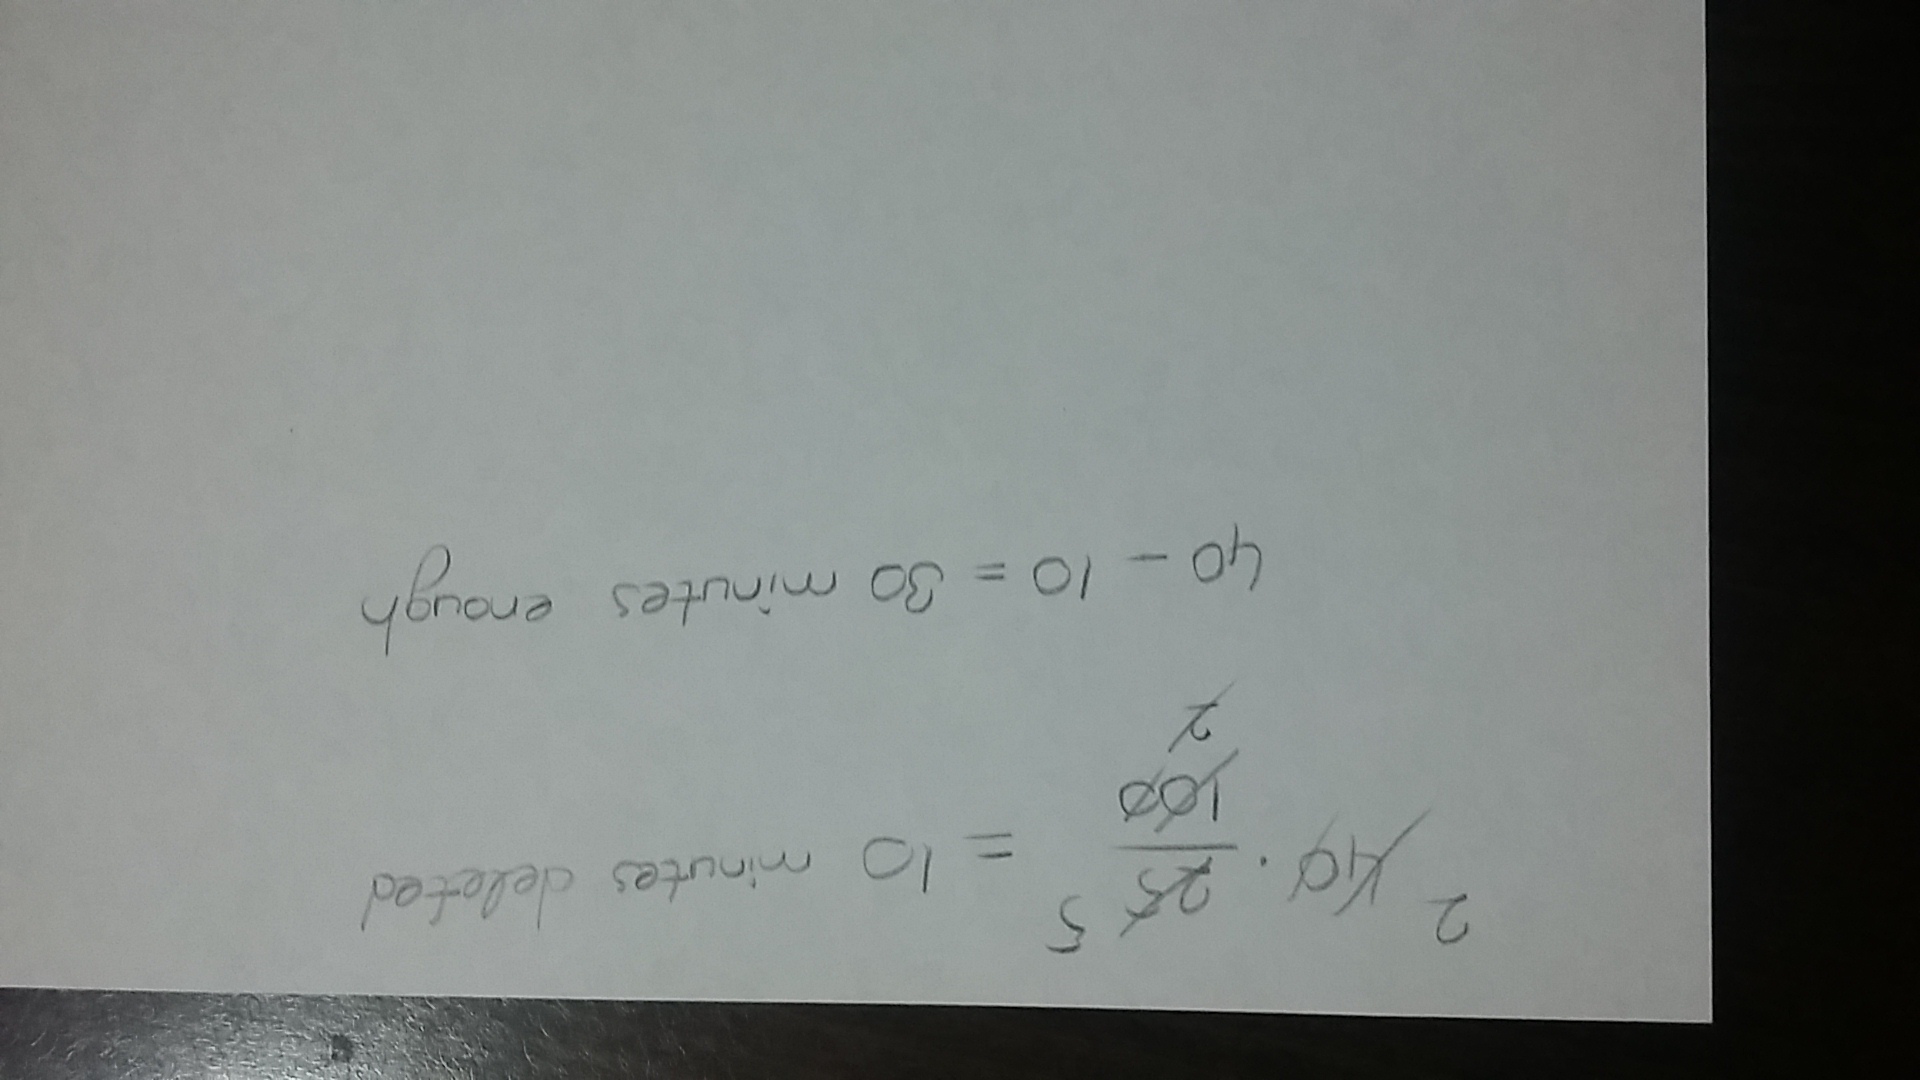 2 40 · 25/100 5 2 = 10 minutes deleted
40 - 10 = 30 minutes enough